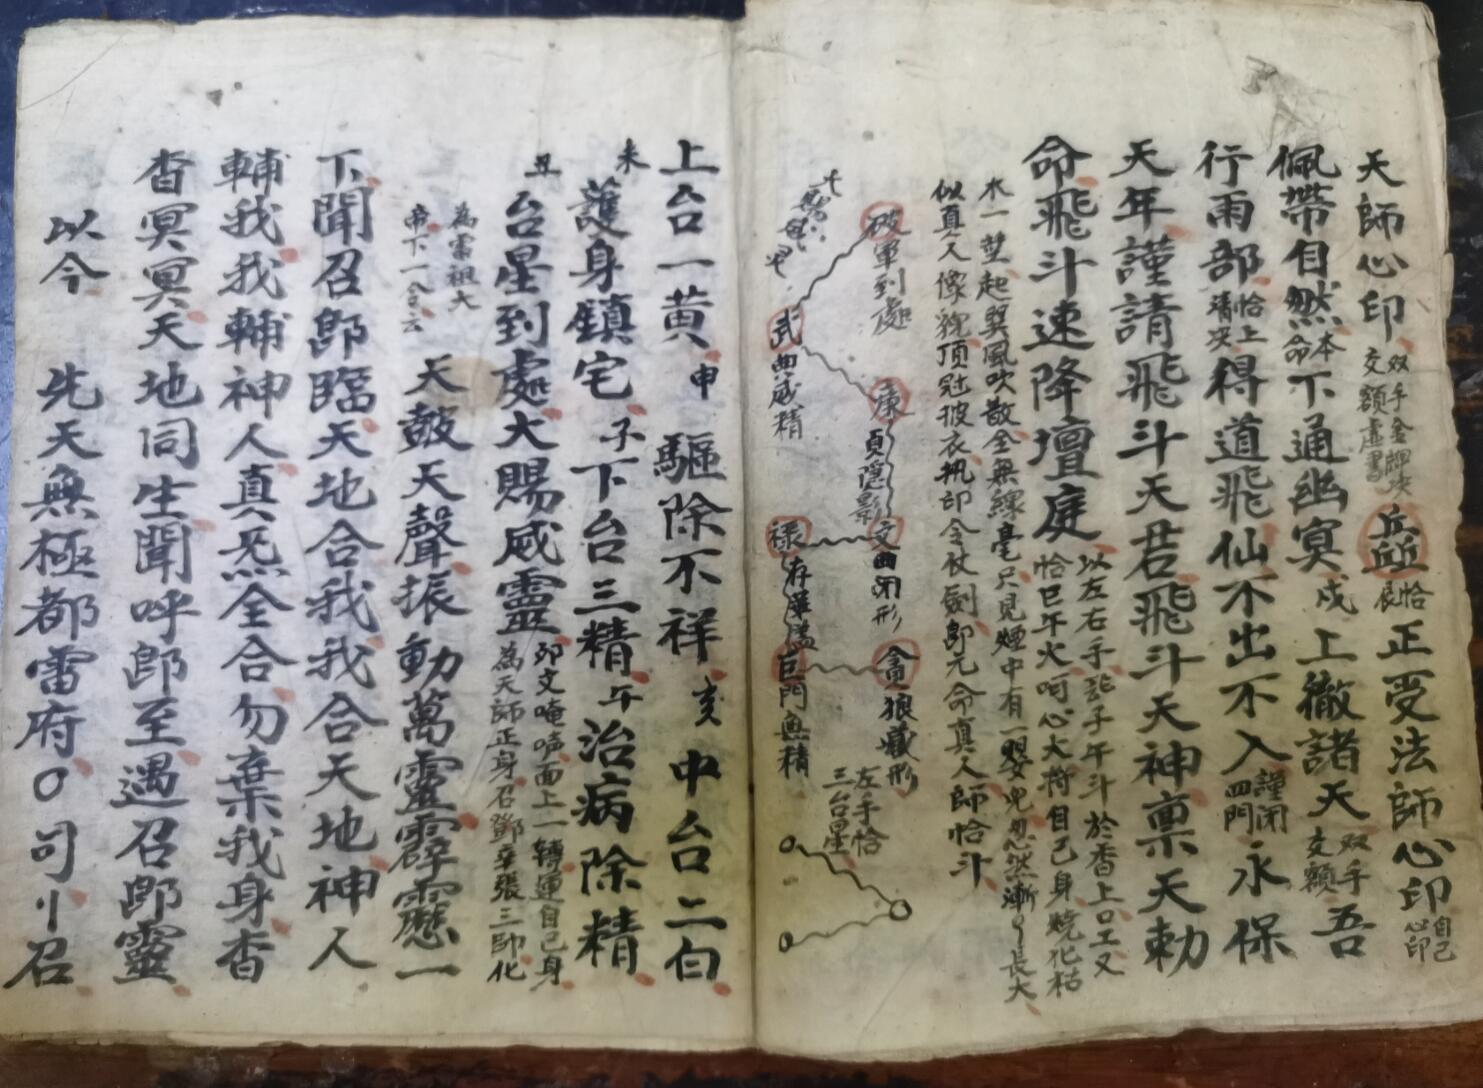 天師心印 双手金牌决交額虚書 兵 恰辰 正受法師心印 自己心印
佩帶自然 本命 下通幽冥 戌 上徹諸天 双手交額 吾
行雨部 恰上清决 得道飛仙不出不入 謹閉四門 永保
天年謹請飛斗天君飛斗天神稟天勅
命飛斗速降壇庭 以左右手 子午斗於香上口工又恰巳午火呵心大将自己身燒化枯
木一塟起巽風吹散全無線毫只見煙中有一嬰兒忽然漸〻長大
似真人像貌頂冠披衣执印令仗劍即元命真人師恰斗
破軍到處
武曲威精
廉貞隐影
文曲闭形
禄存
巨門無精
貪狼藏形
左手恰
三台星
上台一黄 申 驅除不祥 亥 中台二白
未 護身鎮宅 子 下台三精 午 治病除精
丑 台星到處大賜威靈 卯文唵 面上一轉運自己身為天師正身召鄧辛張三帥化
為雷祖大帝下一合云 天鼓天聲振動萬靈霹靂應一
下聞召即臨天地合我我合天地神人
輔我我輔神人真炁全合勿棄我身杳
杳冥冥天地同生聞呼即至遇召即靈
以今 先天無極都雷府〇司 召